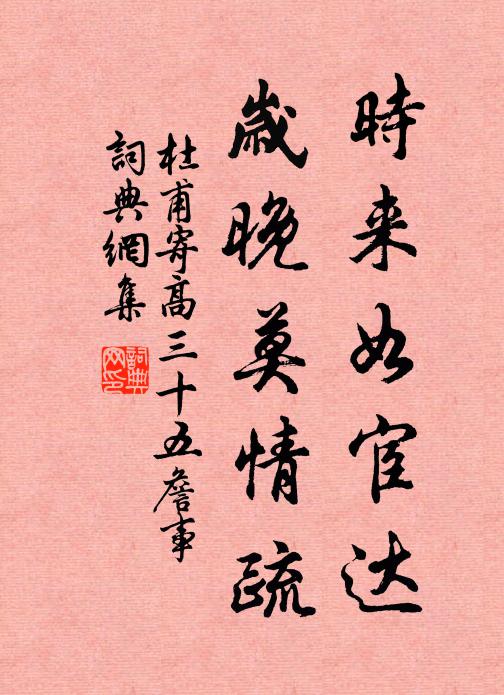 時来如宦达
歳晚莫情疏
杜甫寄高三十五詹事
詞典網集
詞典网印